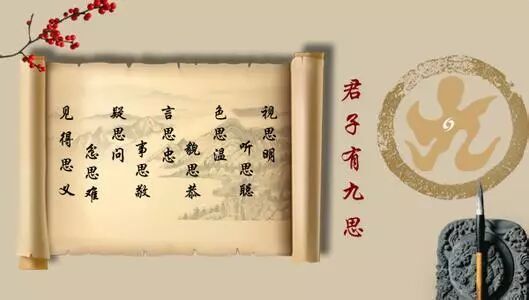 君子有九思
视思明
听思聪
色思温
貌思恭
言思忠
事思敬
疑思问
忿思难
见得思义